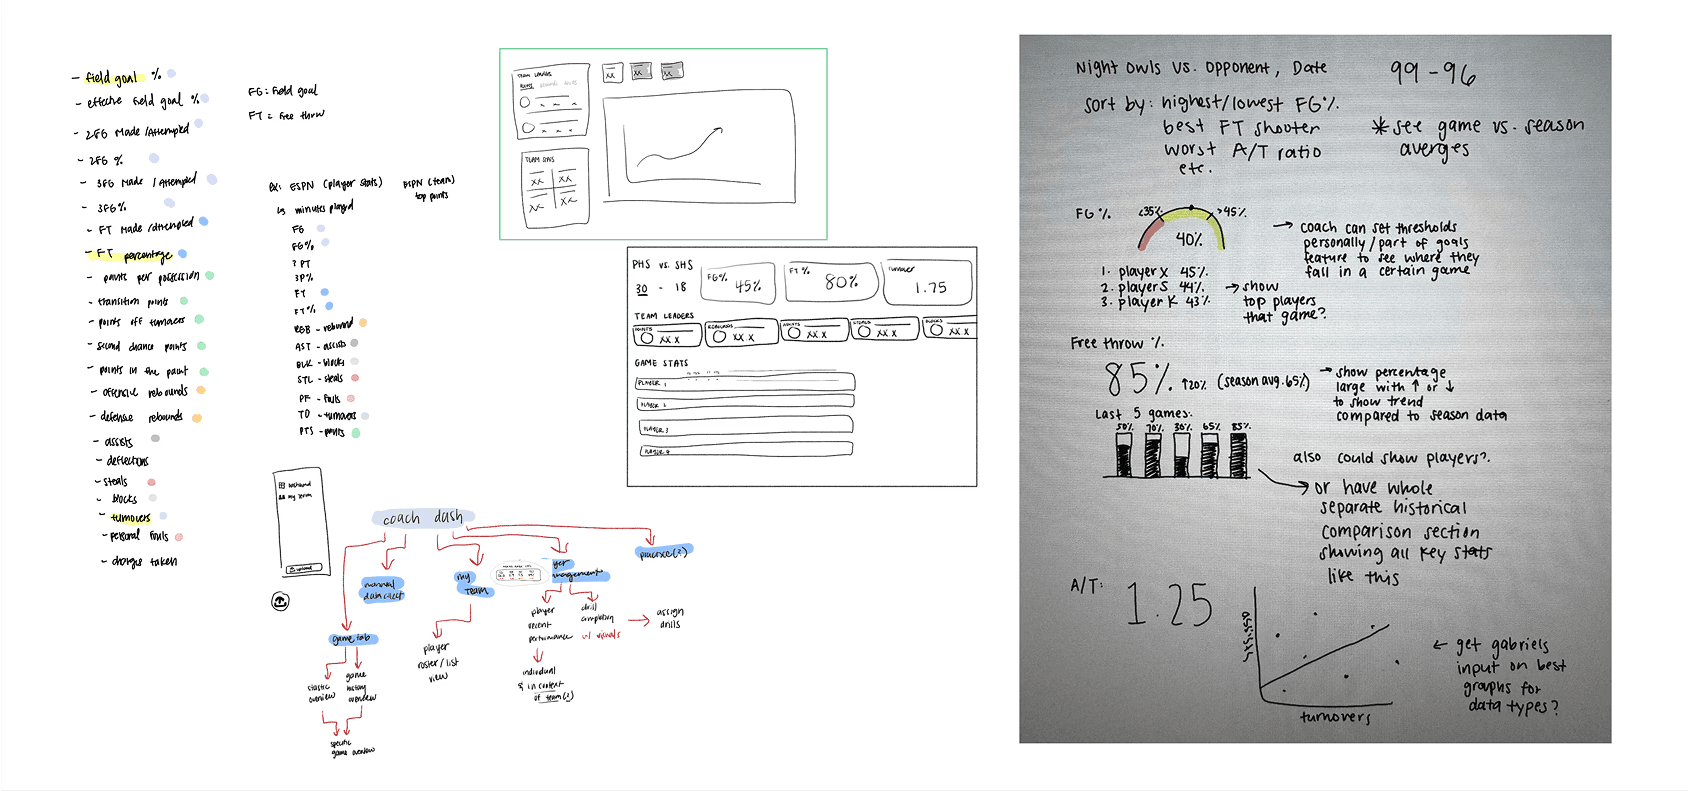 - field goal %
- effective field goal %
- 2FG Made/Attempted
- 2FG %
- 3FG Made/Attempted
- 3FG%
- FT Made/Attempted
- FT percentage
- points per possession
- transition points
- points off turnovers
- second chance points
- points in the paint
- offensive rebounds
- defense rebounds
- assists
- deflections
- steals
- blocks
- turnovers
- personal fouls
- charges taken
FG = Field goal
FT = Free throw
ex: ESPN (player stats)
↳ minutes played
FG
FG%
3PT
3P%
FT
FT%
REB - rebound
AST - assists
BLK - blocks
STL - steals
PF - fouls
TO - turnovers
PTS - points
ESPN (team)
top points
TEAM LEADERS
XX
XX
XX
TEAM STATS
XX
XX
XX
XX
PHS vs. SHS
30 - 18
FG%
45%
FT %
80%
Turnover
1.75
TEAM LEADERS
POINTS
XX X
REBOUNDS
XX X
ASSISTS
XX X
STEALS
XX X
BLOCKS
XX X
GAME STATS
PLAYER 1
PLAYER 2
PLAYER 3
PLAYER 4
dashboard
my team
upload
coach dash
game tab
manual
data collect
my
team
yer
anagement
practice(?)
statistic
overview
game
history
overview
specific
game overview
player
roster/list
view
player
recent
performance
drill
completion
w/ visuals
assign
drills
individual
& in context
of team(?)
Night Owls vs. Opponent, Date
99-96
Sort by: highest/lowest FG%.
best FT shooter
worst A/T ratio
etc.
* see game vs. season
averges
FG %
<35%
>45%
40%
→ coach can set thresholds
personally/part of goals
feature to see where they
fall in a certain game
1. player X 45%.
2. player S 44%.
3. player K 43%.
→ show
top players
that game?
Free throw %.
85% ↑20% (season avg. 65%)
→ show percentage
large with ↑ or ↓
to show trend
compared to season data
Last 5 games:
50% 70% 30% 65% 85%
also could show players?
or have whole
separate historical
comparison section
showing all key stats
like this
A/T:
1.25
assists
turnovers
← get gabriels
input on best
graphs for
data types?